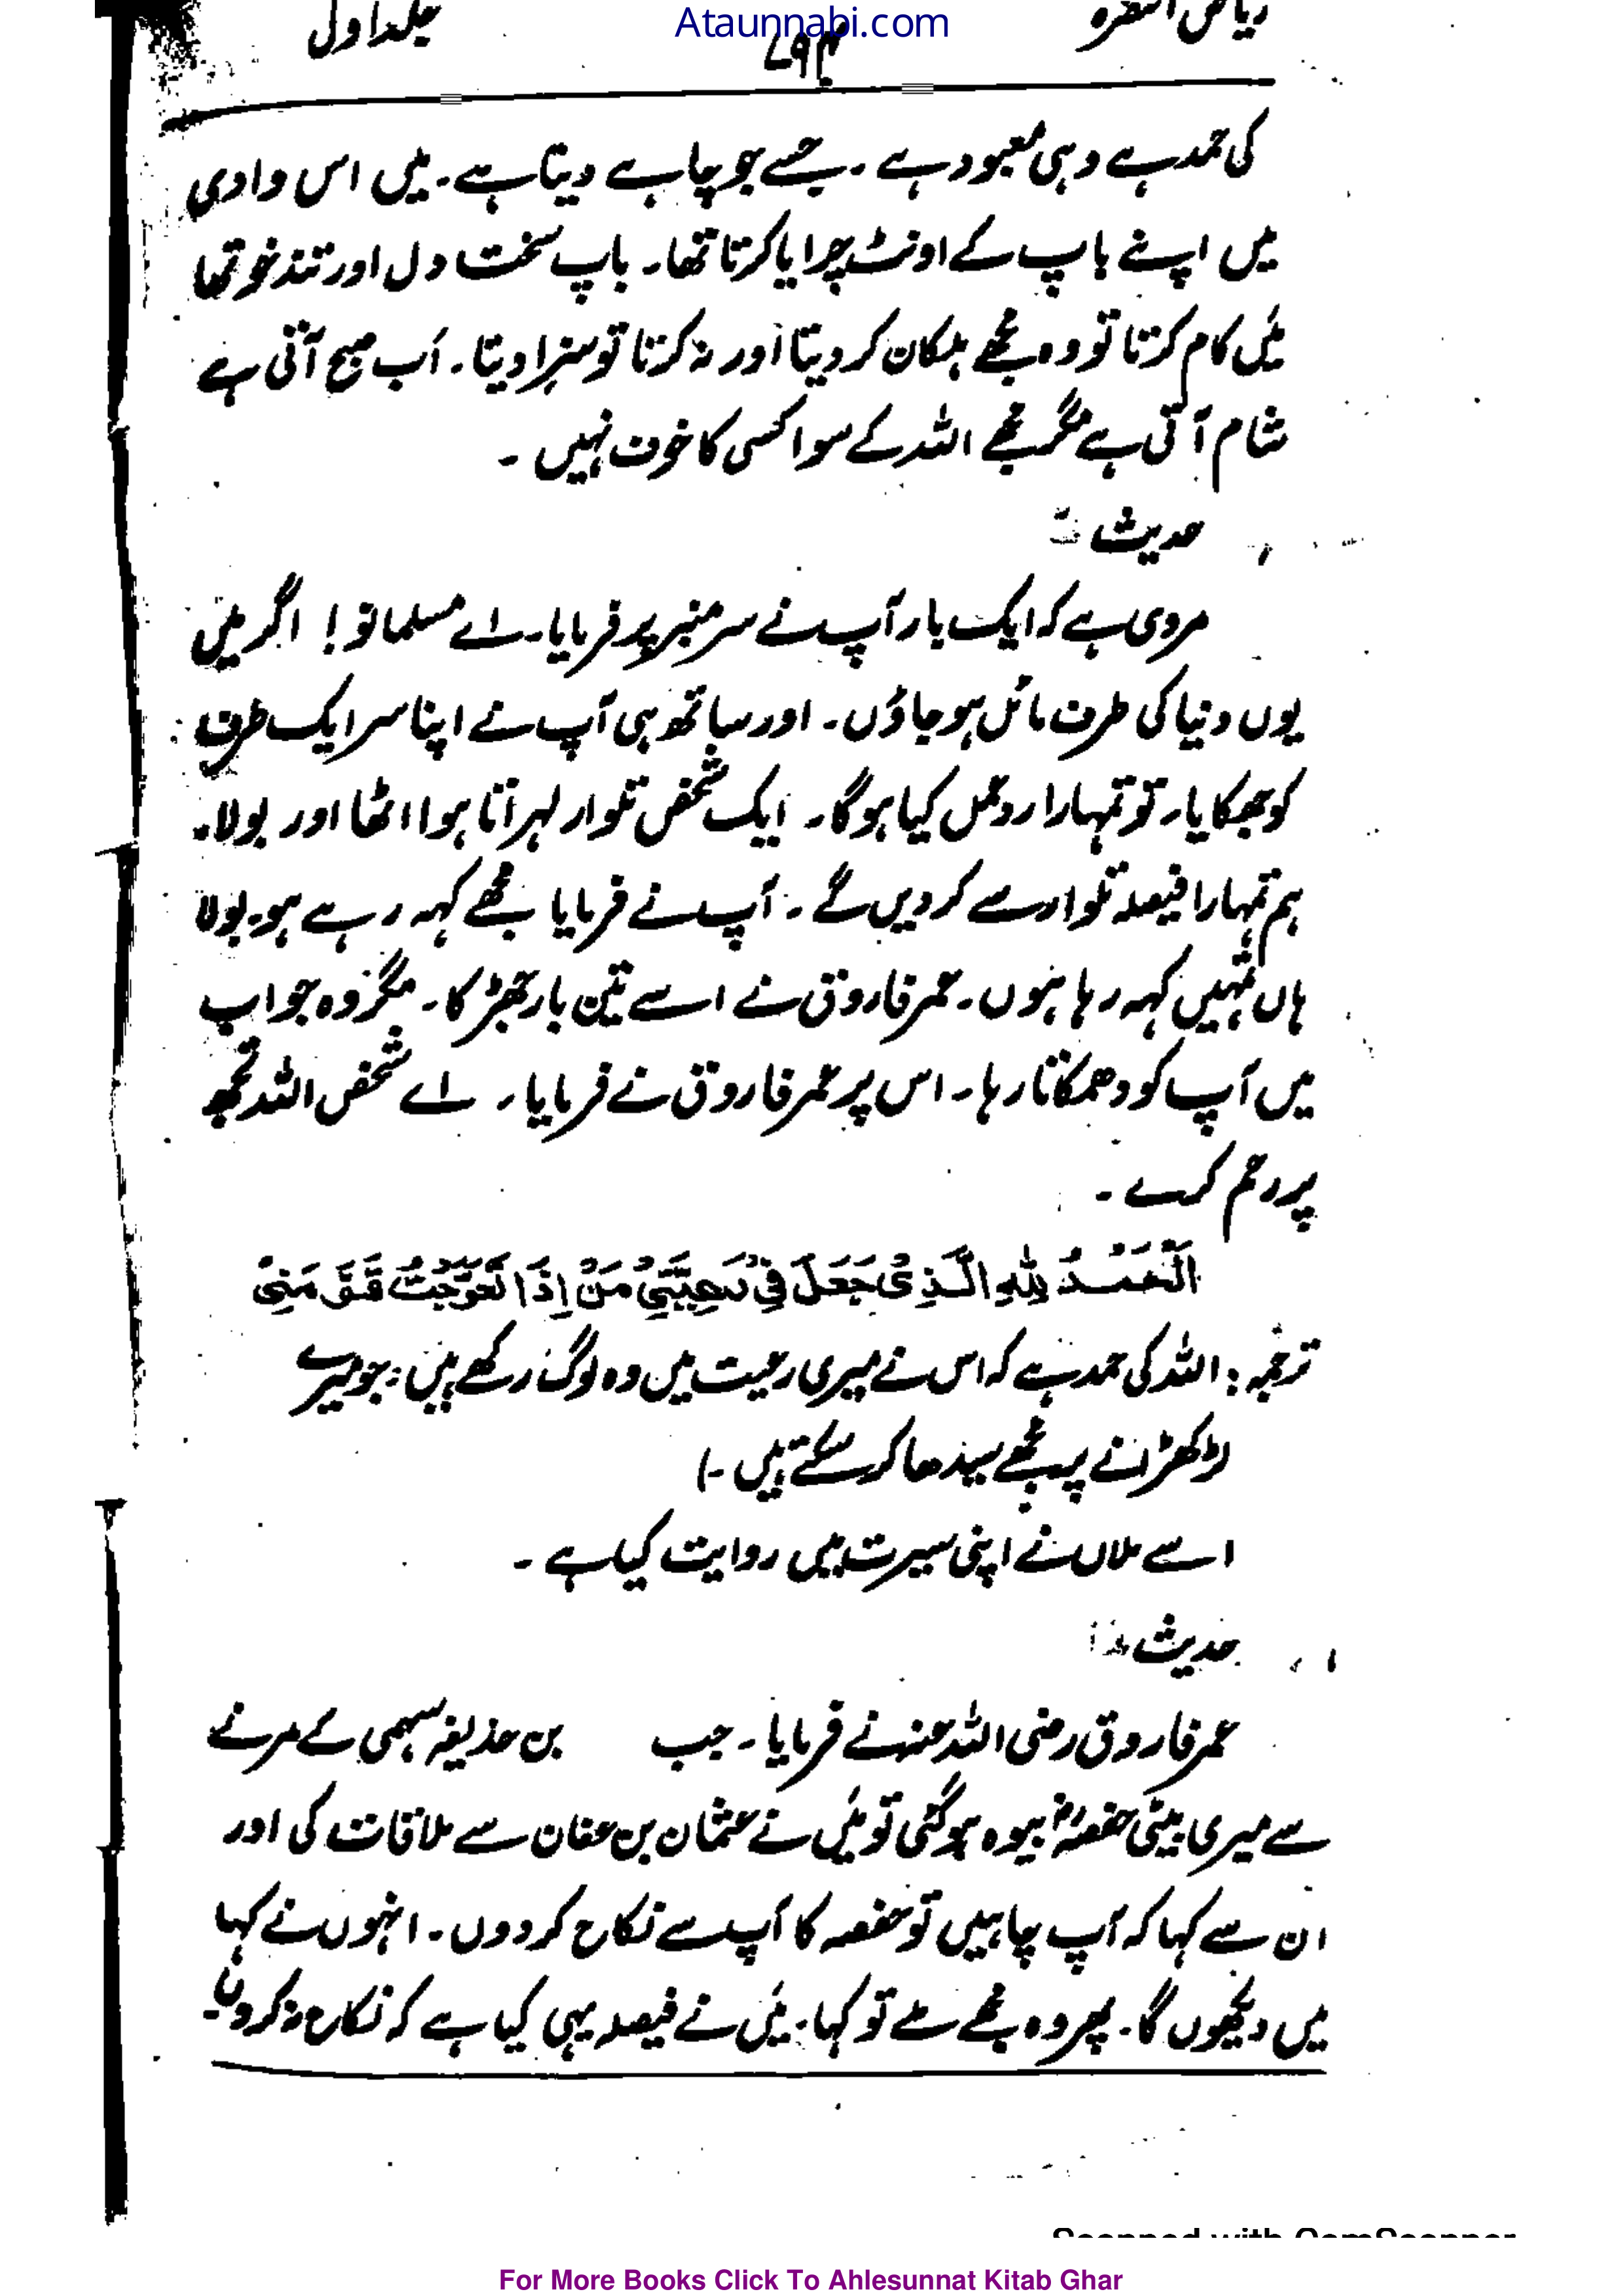 Ataunnabi.com
ریاض النضرہ ۷۹۴ جلد اول
کی حمد ہے وہی معبود ہے ۔ جسے جو چاہے دیتا ہے ۔ میں اس وادی
میں اپنے باپ کے اونٹ چرایا کرتا تھا ۔ باپ سخت دل اور تند خو تھا
میں کام کرتا تو وہ مجھے ہلکان کر دیتا اور نہ کرتا تو سزا دیتا ۔ اب صبح آتی ہے
شام آتی ہے مگر مجھے اللہ کے سوا کسی کا خوف نہیں ۔
حدیث
مروی ہے کہ ایک بار آپ نے سر منبر پر فرمایا ۔ اے مسلمانو ! اگر میں
یوں دنیا کی طرف مائل ہو جاؤں ۔ اور ساتھ ہی آپ نے اپنا سر ایک طرف
کو جھکایا ۔ تو تمہارا ردعمل کیا ہو گا ۔ ایک شخص تلوار لہراتا ہوا اٹھا اور بولا ۔
ہم تمہارا فیصلہ تلوار سے کر دیں گے ۔ آپ نے فرمایا مجھے کہہ رہے ہو ۔ بولا
ہاں تمہیں کہہ رہا ہوں ۔ عمر فاروق نے اسے تین بار جھڑکا ۔ مگر وہ جواب
میں آپ کو دھمکاتا رہا ۔ اس پر عمر فاروق نے فرمایا ۔ اے شخص اللہ تجھ
پر رحم کرے ۔
اَلْحَمْدُ لِلّٰهِ الَّذِیْ جَعَلَ فِیْ رَعِیَّتِیْ مَنْ اِذَا تَعَوَّجْتُ قَوَّمَنِیْ
ترجمہ : اللہ کی حمد ہے کہ اس نے میری رعیت میں وہ لوگ رکھے ہیں ؛ جو میرے
لڑکھڑانے پہ مجھے سیدھا کر سکتے ہیں ۔)
اسے ملاں نے اپنی سیرت میں روایت کیا ہے ۔
حدیث
عمر فاروق رضی اللہ عنہ نے فرمایا ۔ جب بن حذیفہ سہمی کے مرنے
سے میری بیٹی حفصہؓ بیوہ ہو گئی تو میں نے عثمان بن عفان سے ملاقات کی اور
ان سے کہا کہ آپ چاہیں تو حفصہ کا آپ سے نکاح کر دوں ۔ انہوں نے کہا
میں دیکھوں گا ۔ پھر وہ مجھے ملے تو کہا ۔ میں نے فیصلہ یہی کیا ہے کہ نکاح نہ کروں
Scanned with CamScanner
For More Books Click To Ahlesunnat Kitab Ghar